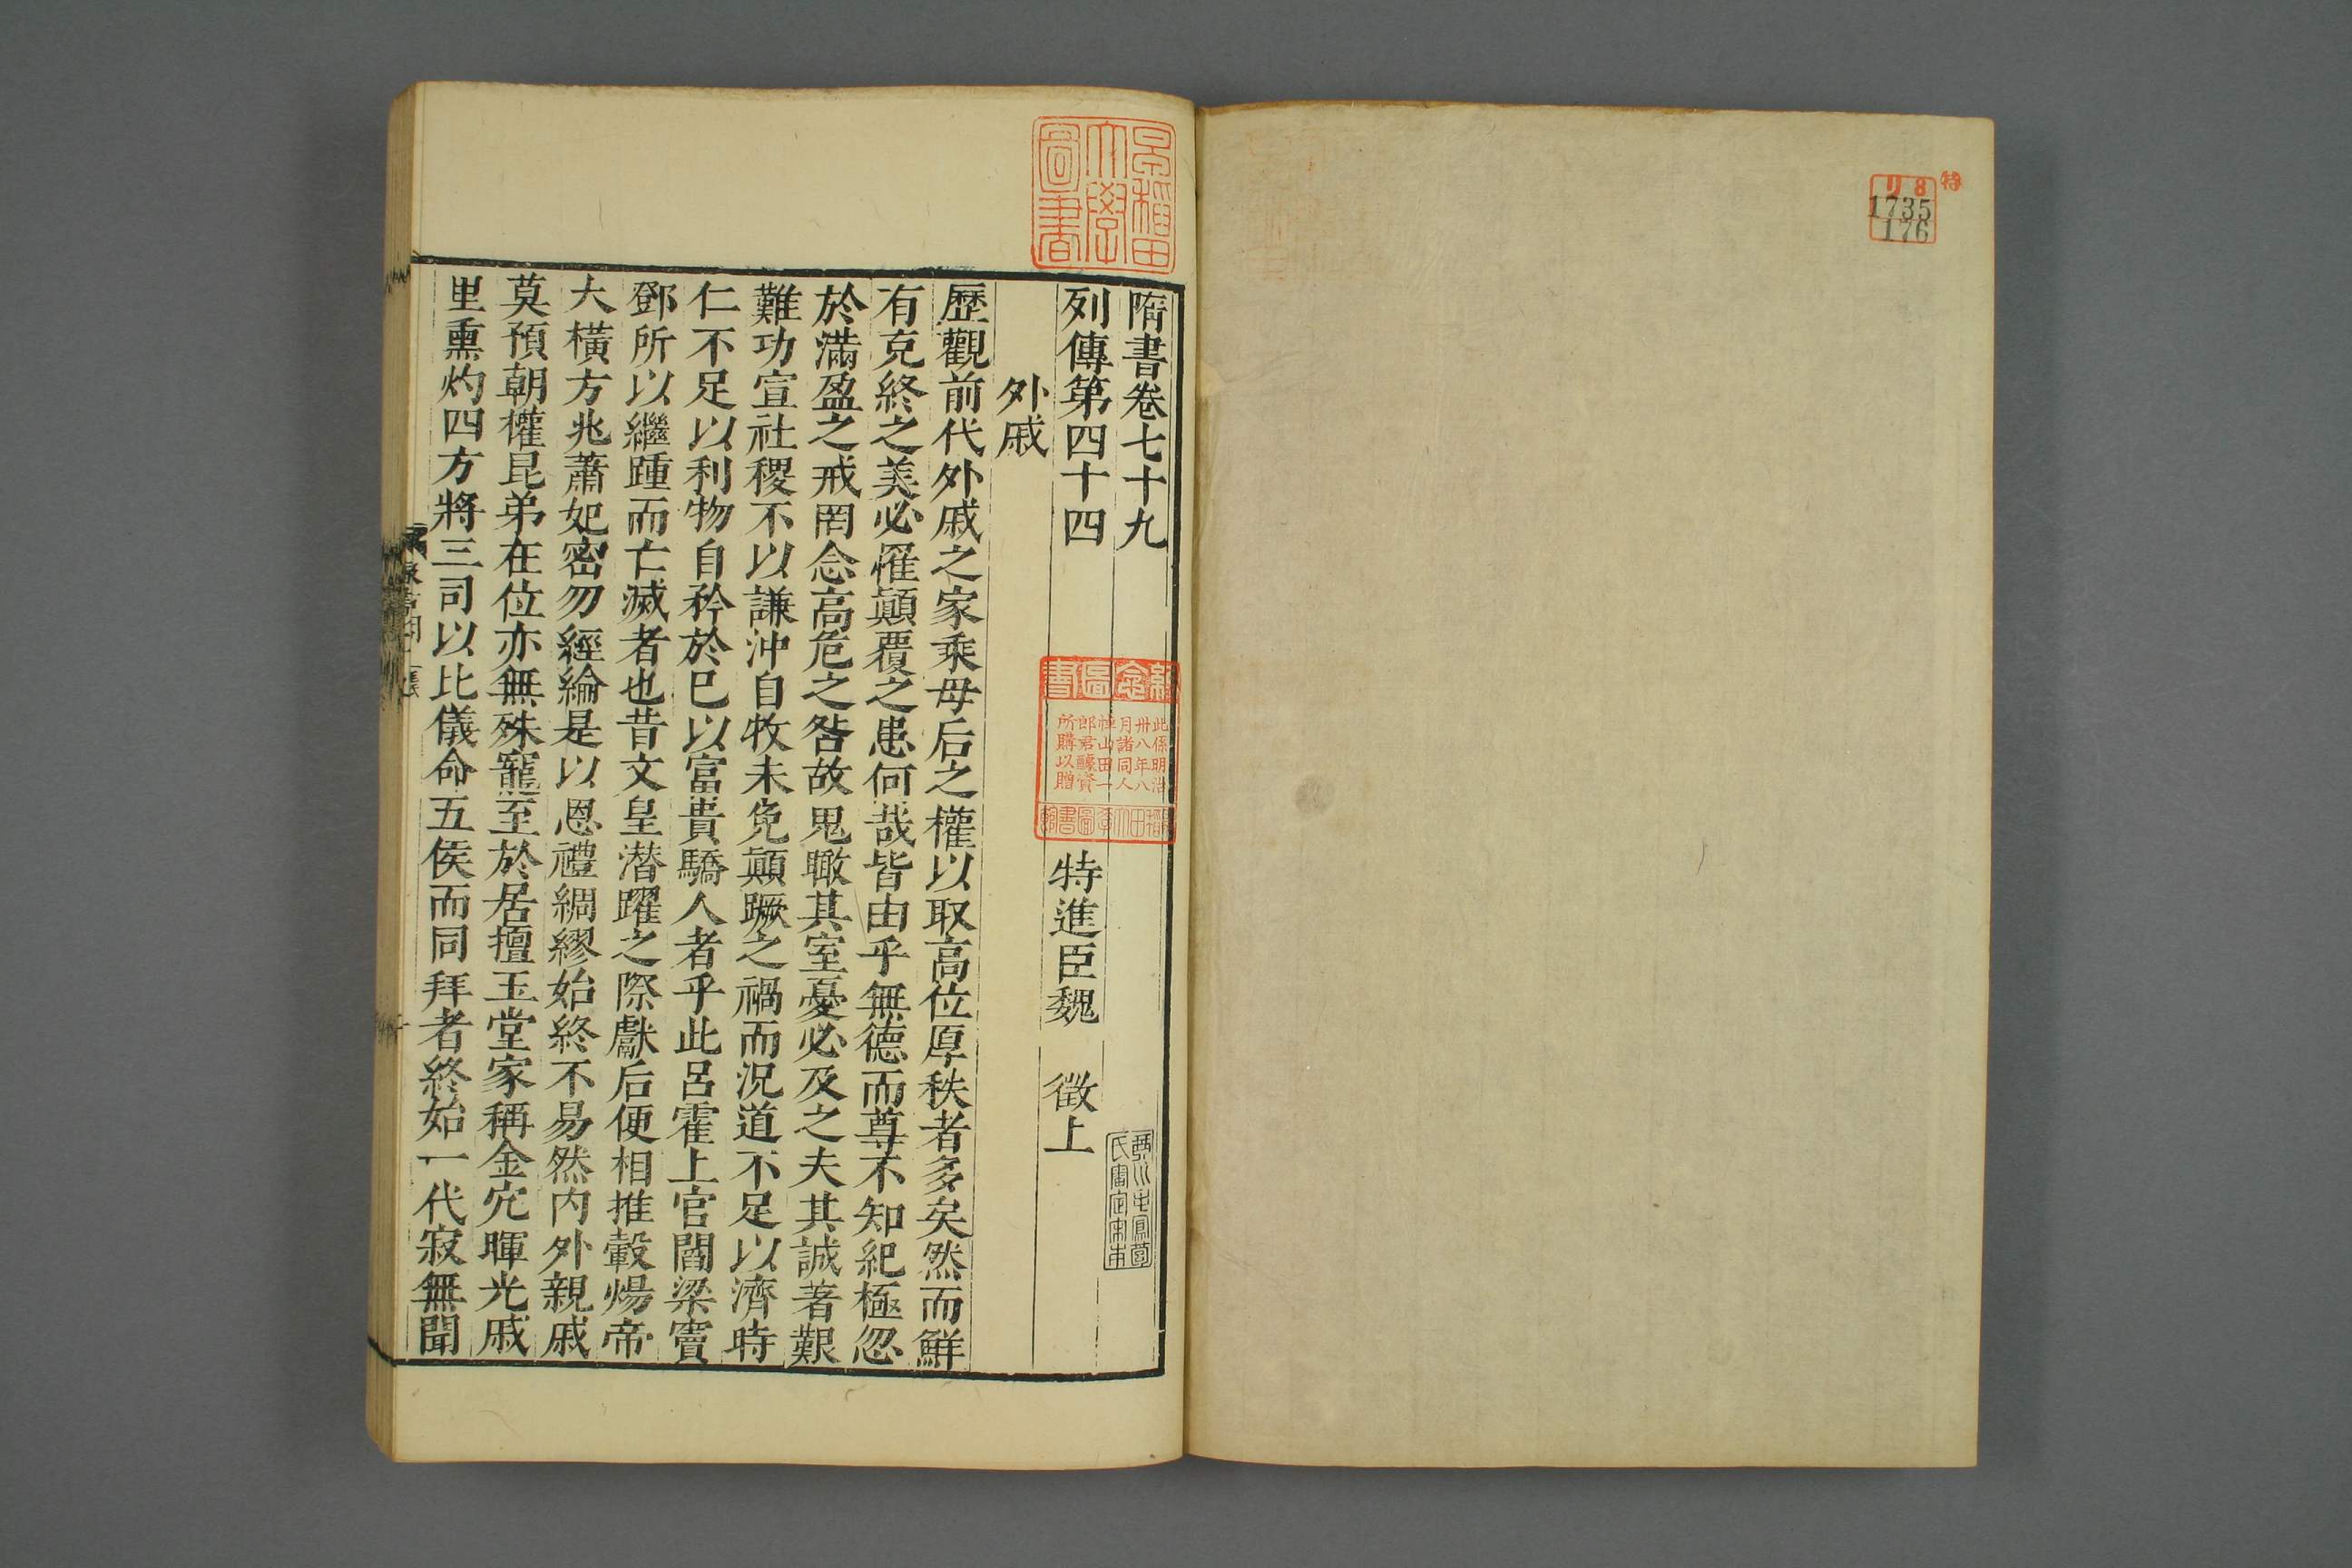 特
リ8
1735
176
早稲田大學圖書
隋書卷七十九
列傳第四十四
特進臣魏 徵上
外戚
歷觀前代外戚之家乘母后之權以取高位厚秩者多矣然而鮮
有克終之美必罹顛覆之患何哉皆由乎無德而尊不知紀極忽
於滿盈之戒罔念高危之咎故鬼瞰其室憂必及之夫其誠著艱
難功宣社稷不以謙沖自牧未免顛蹶之禍而況道不足以濟時
仁不足以利物自矜於已以富貴驕人者乎此呂霍上官閻梁竇
鄧所以繼踵而亡滅者也昔文皇潛躍之際獻后便相推轂煬帝
大橫方兆蕭妃密勿經綸是以恩禮綢繆始終不易然內外親戚
莫預朝權昆弟在位亦無殊寵至於居擅玉堂家稱金穴暉光戚
里熏灼四方將三司以比儀命五侯而同拜者終始一代寂無聞
此係明治
卅八年八
月諸同人
悼山田一
郎君醵資
所購以贈